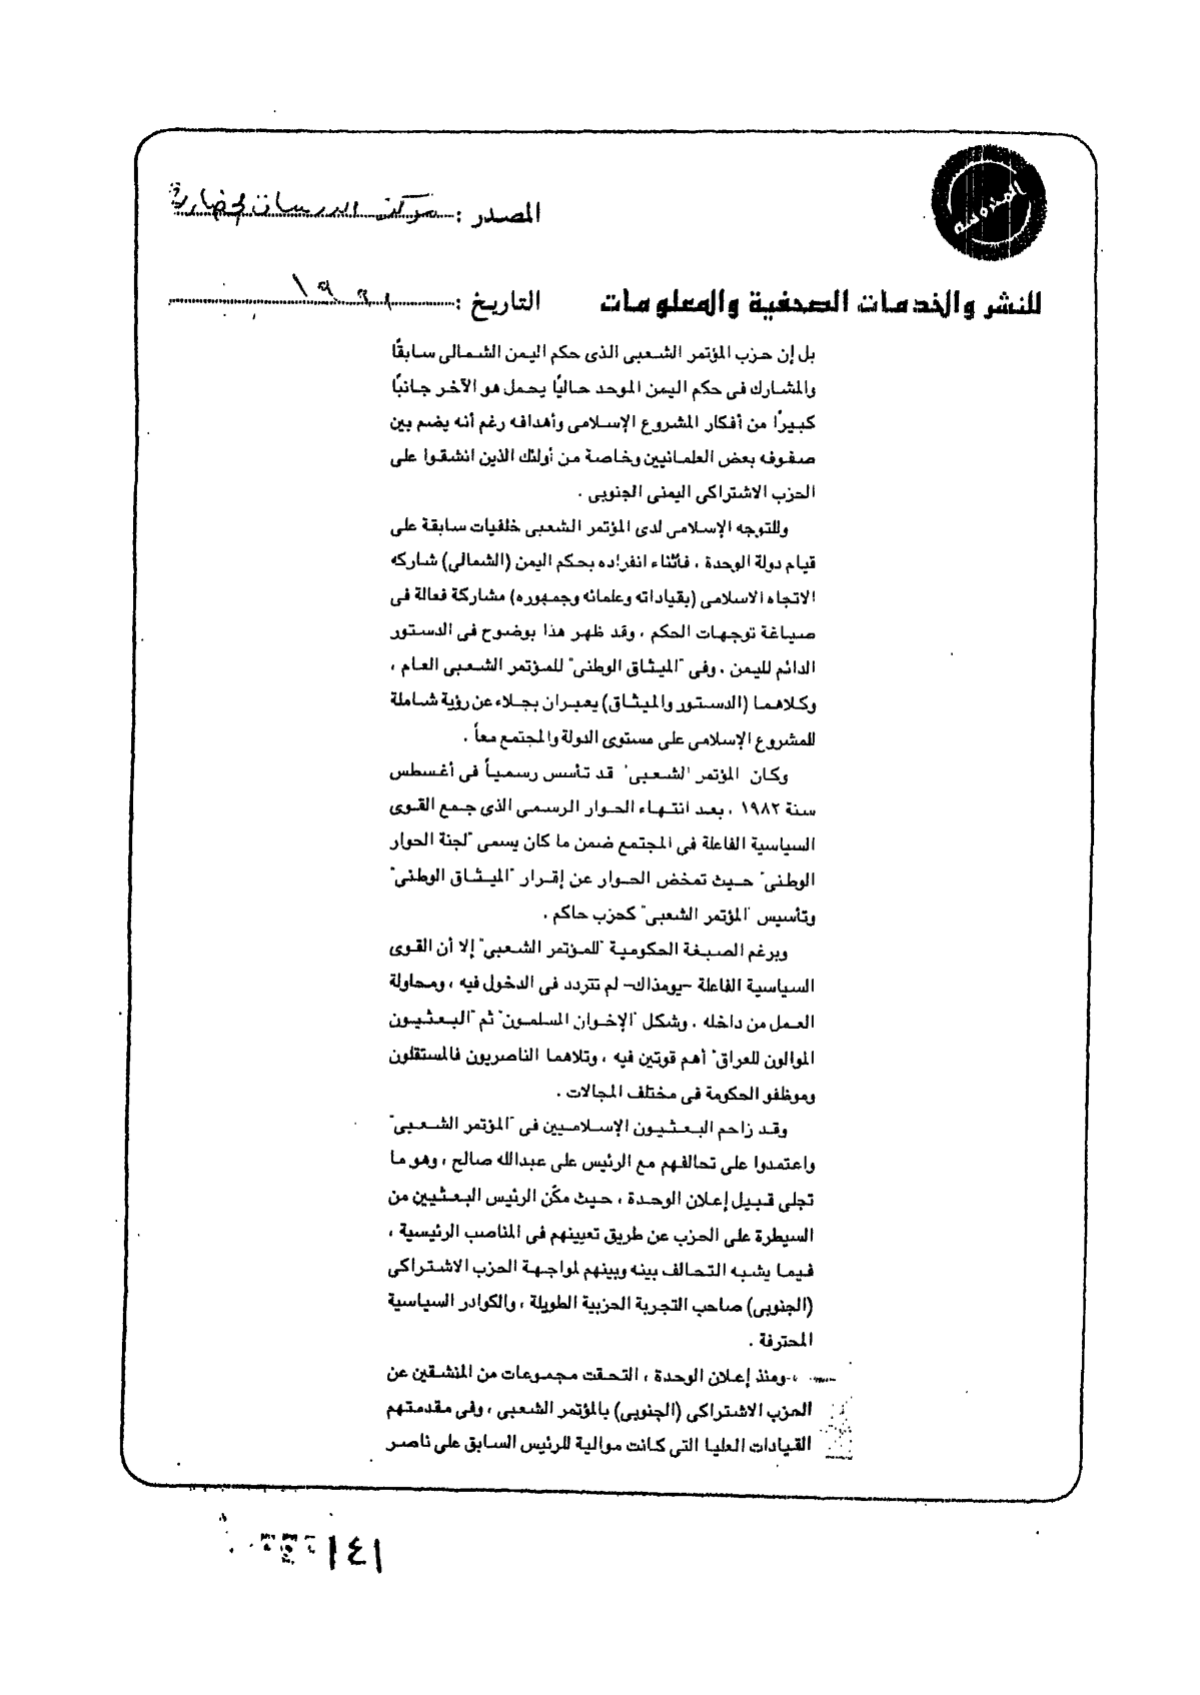 المحروسة
المصدر : مركز الدراسات الحضارية
للنشر والخدمات الصحفية والمعلومات
التاريخ : ١٩٩١
بل إن حزب المؤتمر الشعبى الذى حكم اليمن الشمالى سابقًا
والمشارك فى حكم اليمن الموحد حاليًا يحمل هو الآخر جانبًا
كبيرًا من أفكار المشروع الإسلامى وأهدافه رغم أنه يضم بين
صفوفه بعض العلمانيين وخاصة من أولئك الذين انشقوا على
الحزب الاشتراكى اليمنى الجنوبى .
وللتوجه الإسلامى لدى المؤتمر الشعبى خلفيات سابقة على
قيام دولة الوحدة ، فأثناء انفراده بحكم اليمن (الشمالى) شاركه
الاتجاه الاسلامى (بقياداته وعلمائه وجمهوره) مشاركة فعالة فى
صياغة توجهات الحكم ، وقد ظهر هذا بوضوح فى الدستور
الدائم لليمن . وفى "الميثاق الوطنى" للمؤتمر الشعبى العام ،
وكلاهما (الدستور والميثاق) يعبران بجلاء عن رؤية شاملة
للمشروع الإسلامى على مستوى الدولة والمجتمع معاً .
وكان المؤتمر الشعبى" قد تأسس رسمياً فى أغسطس
سنة ١٩٨٢ ، بعد انتهاء الحوار الرسمى الذى جمع القوى
السياسية الفاعلة فى المجتمع ضمن ما كان يسمى "لجنة الحوار
الوطنى" حيث تمخض الحوار عن إقرار "الميثاق الوطنى"
وتأسيس "المؤتمر الشعبى" كحزب حاكم .
وبرغم الصبغة الحكومية "للمؤتمر الشعبى" إلا أن القوى
السياسية الفاعلة -يومذاك- لم تتردد فى الدخول فيه ، ومحاولة
العمل من داخله . وشكل "الإخوان المسلمون" ثم "البعثيون
الموالون للعراق" أهم قوتين فيه ، وتلاهما الناصريون فالمستقلون
وموظفو الحكومة فى مختلف المجالات .
وقد زاحم البعثيون الإسلاميين فى "المؤتمر الشعبى"
واعتمدوا على تحالفهم مع الرئيس على عبدالله صالح ، وهو ما
تجلى قبيل إعلان الوحدة ، حيث مكّن الرئيس البعثيين من
السيطرة على الحزب عن طريق تعيينهم فى المناصب الرئيسية ،
فيما يشبه التحالف بينه وبينهم لمواجهة الحزب الاشتراكى
(الجنوبى) صاحب التجربة الحزبية الطويلة ، والكوادر السياسية
المحترفة .
ومنذ إعلان الوحدة ، التحقت مجموعات من المنشقين عن
الحزب الاشتراكى (الجنوبى) بالمؤتمر الشعبى ، وفى مقدمتهم
القيادات العليا التى كانت موالية للرئيس السابق على ناصر
١٤١